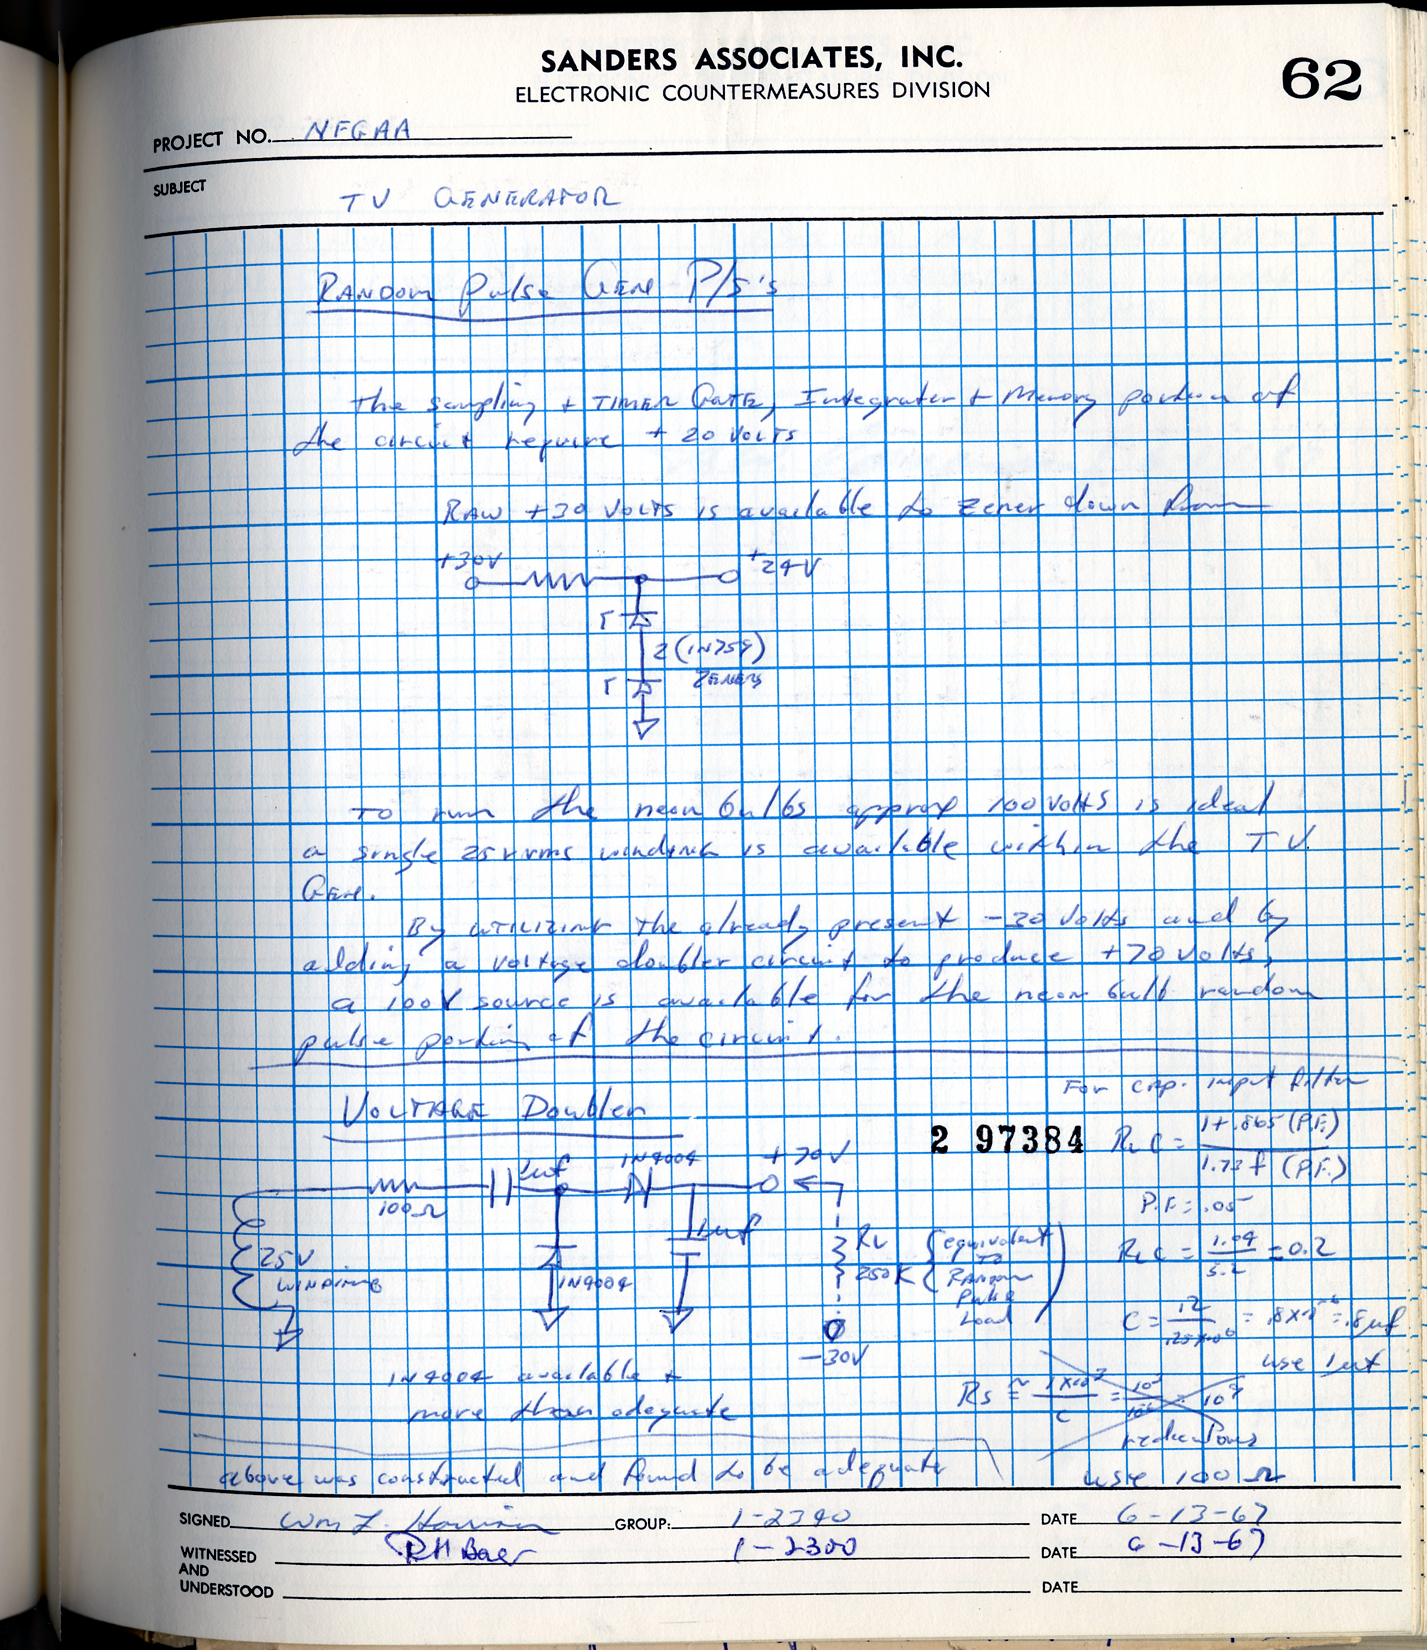 SANDERS ASSOCIATES, INC.
ELECTRONIC COUNTERMEASURES DIVISION
62
PROJECT NO. NFGAA
SUBJECT
TV GENERATOR
RANDOM Pulse GEN P/S's
The sampling + TIMER GATE, Integrator + Memory portion of
the circuit require + 20 VOLTS
RAW +30 VOLTS is available to zener down from
+30V
+24V
2 (1N759)
ZENERS
To run the neon bulbs approx 100 volts is ideal
a single 25 V rms WINDING is available within the T V.
GEN.
By UTILIZING the already present -30 Volts and by
adding a voltage doubler circuit to produce +70 volts,
a 100V source is available for the neon bulb random
pulse portion of the circuit.
For cap. input filter
VOLTAGE Doubler
2 97384
RL C = 1+.865 (P.F.)
1.73 f (P.F.)
P.F. = .05
1uf
1N4004
+70V
100Ω
25V
WINDING
1N4004
1uf
RL
250K
(equivalent
TO
Random
Pulse
Load)
-30V
RL C = 1.04
5.2
= 0.2
C = .2
.25×10⁶
= .8×10⁻⁶ = .8uf
use 1uf
1N4004 available +
more than adequate
Rs ≅
C
use 100 Ω
above was constructed and found to be adequate
SIGNED Wm L. Harrison GROUP: 1-2340 DATE 6-13-67
WITNESSED
AND
UNDERSTOOD
RH Baer 1-2300 DATE 6-13-67
DATE